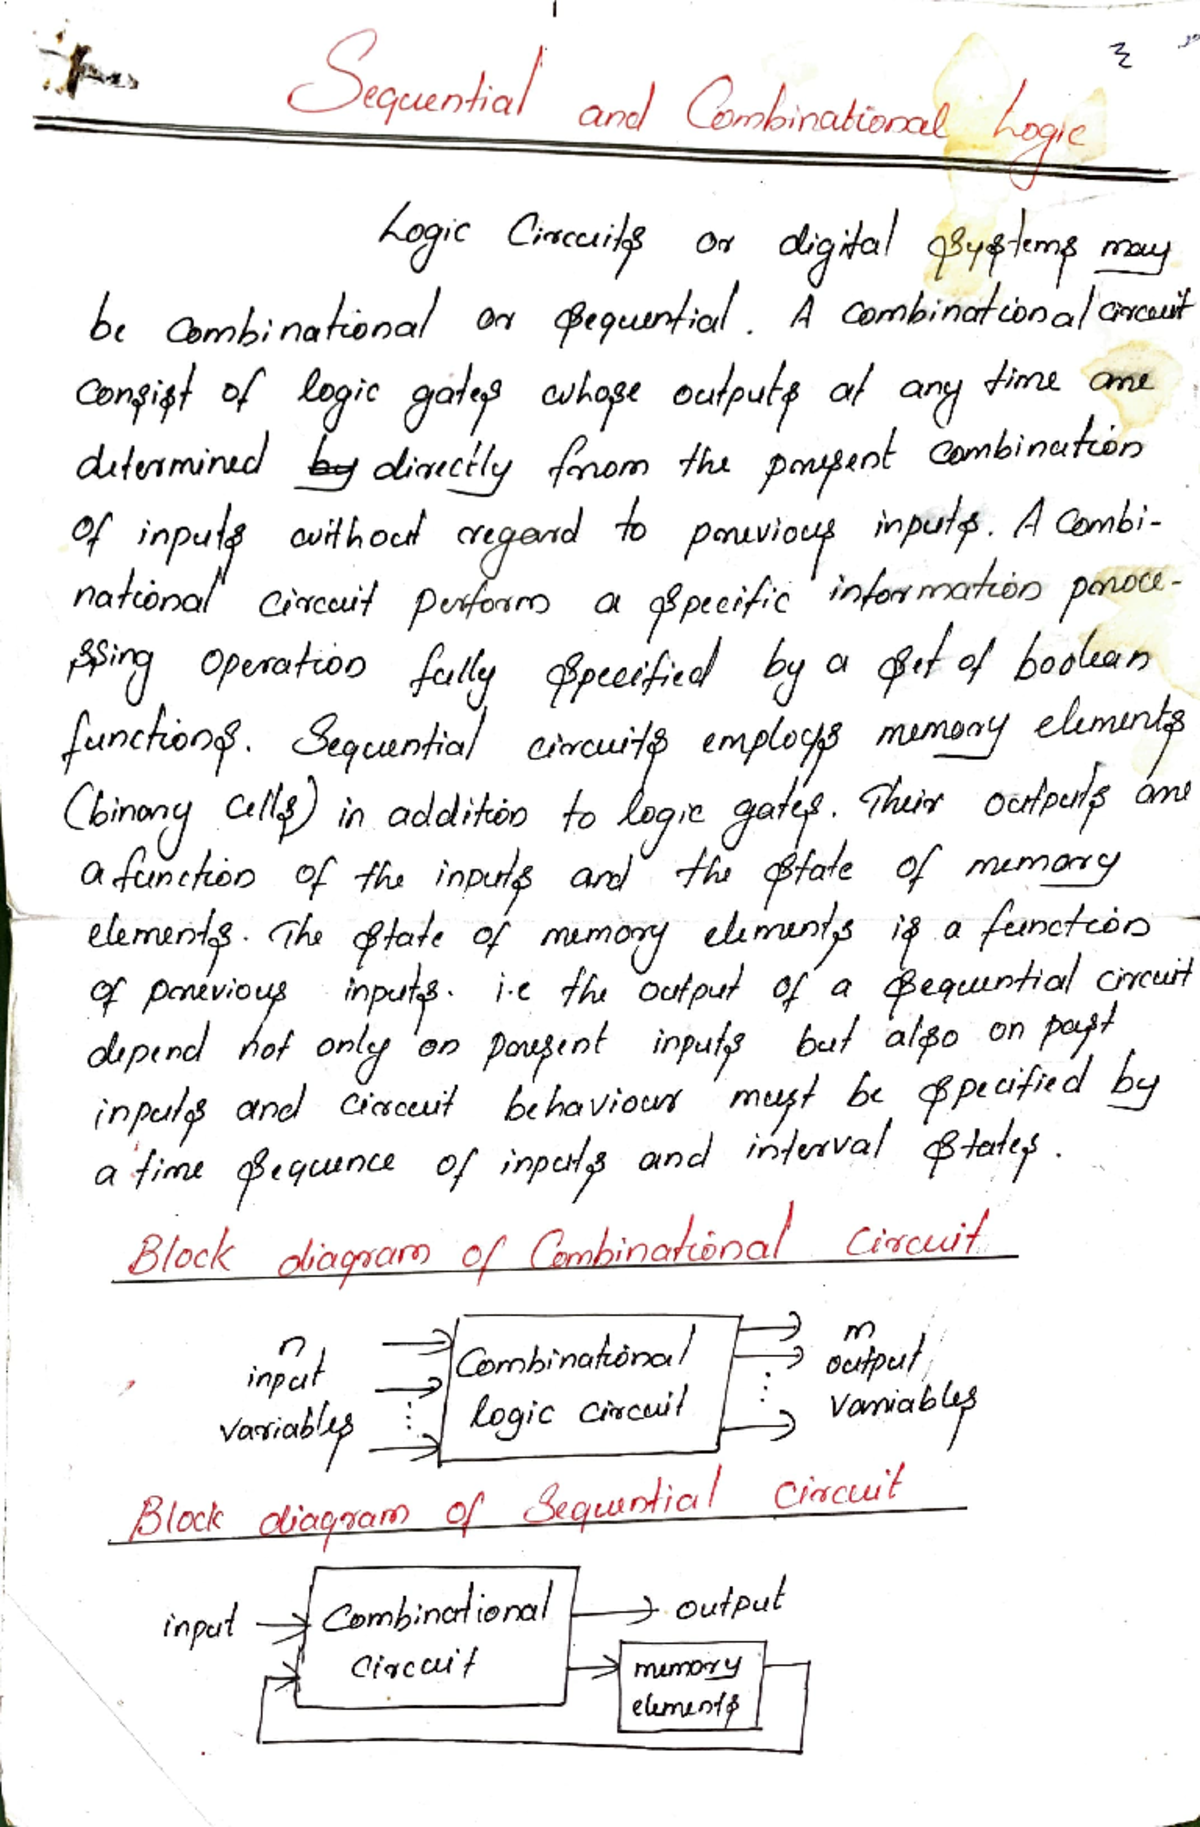 Sequential and Combinational Logic
Logic Circuits or digital systems may
be combinational or sequential. A combinational circuit
consist of logic gates whose outputs at any time are
determined by directly from the present combination
of inputs without regard to previous inputs. A Combi-
national circuit perform a specific information proce-
ssing operation fully specified by a set of boolean
functions. Sequential circuits employs memory elements
(binary cells) in addition to logic gates. Their outputs are
a function of the inputs and the state of memory
elements. The state of memory elements is a function
of previous inputs. i.e the output of a sequential circuit
depend not only on present inputs but also on past
inputs and circuit behaviour must be specified by
a time sequence of inputs and interval states.
Block diagram of Combinational Circuit
n
input
variables
Combinational
logic circuit
m
output
variables
Block diagram of Sequential Circuit
input
Combinational
Circuit
output
memory
elements